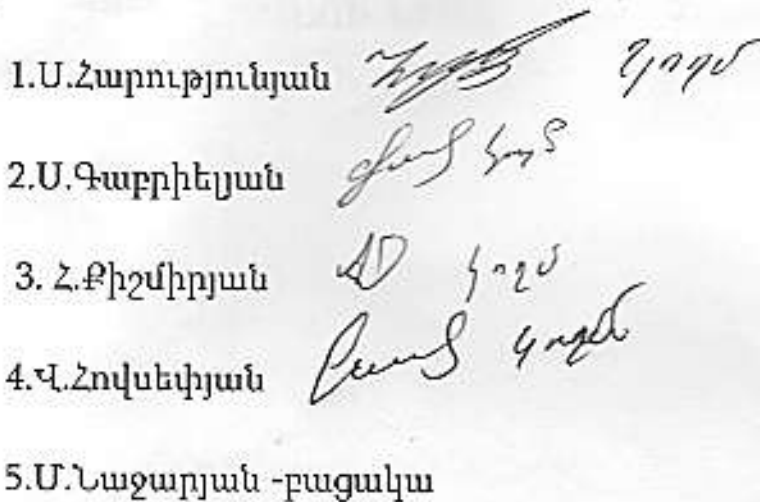 1.Ս.Հարությունյան կողմ
2.Ս.Գաբրիելյան կողմ
3. Հ.Քիշմիրյան կողմ
4.Վ.Հովսեփյան կողմ
5.Մ.Նաջարյան -բացակա